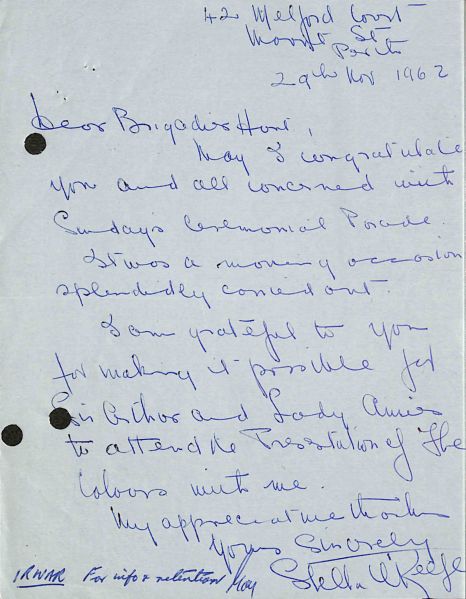 42 Melford Court
Mount St
Perth
29th Nov 1962
Dear Brigadier Hunt,
May I congratulate
you and all concerned with
Sundays Ceremonial Parade.
It was a moving occasion
splendidly carried out.
I am grateful to you
for making it possible for
Sir Arthur and Lady Amies
to attend the Presentation of The
Colours with me.
My appreciative thanks
Yours Sincerely
Stella O'Keefe
1RWAR For info & retention